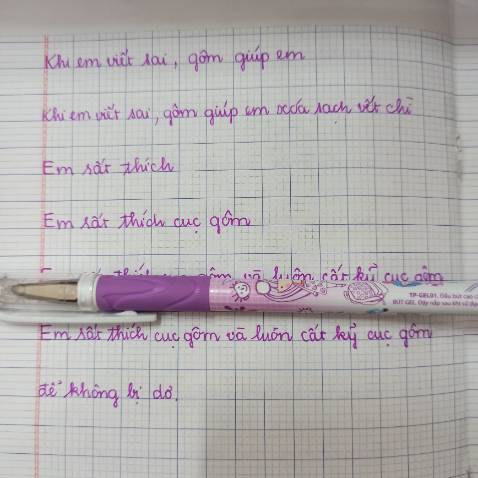 Khi em viết sai, gôm giúp em
Khi em viết sai, gôm giúp em xóa sạch vết chì
Em rất thích
Em rất thích cục gôm
gôm và luôn cất kỹ cục gôm
TP-GEL01. Đầu bút cao
BÚT GEL. Đậy nắp sau khi sử dụng
Em rất thích cục gôm và luôn cất kỹ cục gôm
để không bị dơ.